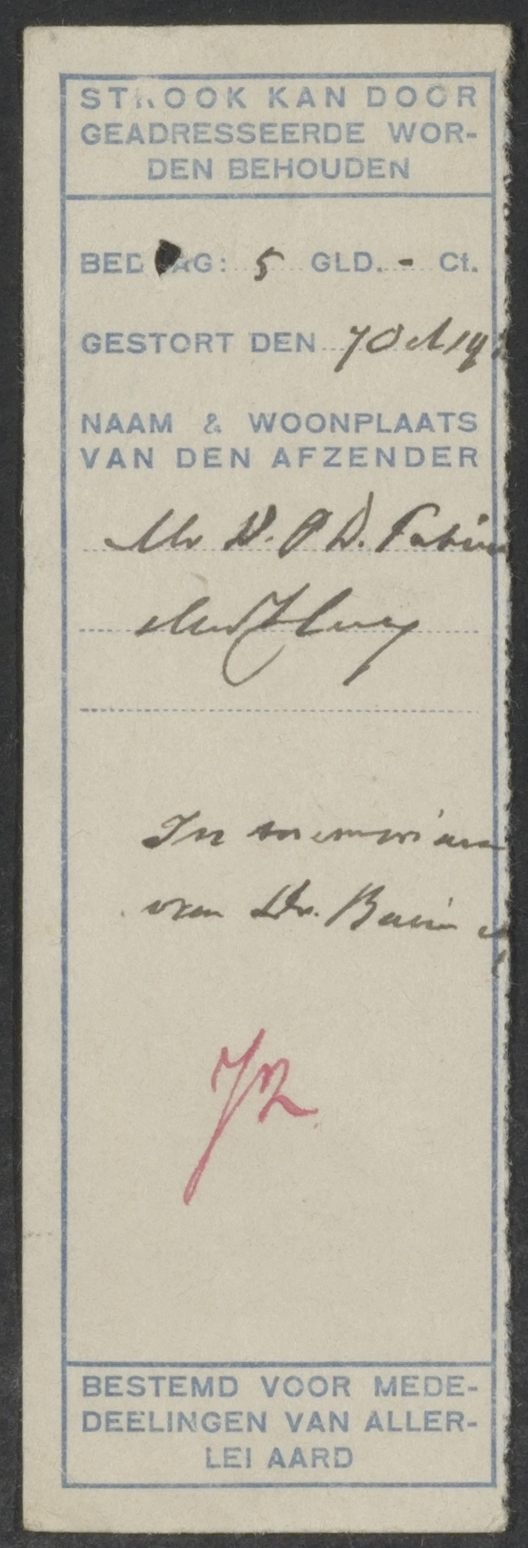 STROOK KAN DOOR
GEADRESSEERDE WOR-
DEN BEHOUDEN
BEDRAG: 5 GLD. - Ct.
GESTORT DEN 7 Oct 19
NAAM & WOONPLAATS
VAN DEN AFZENDER
Mr D. P. D. Fabius
In memoriam
van Dr. Bavinck
72
BESTEMD VOOR MEDE-
DEELINGEN VAN ALLER-
LEI AARD